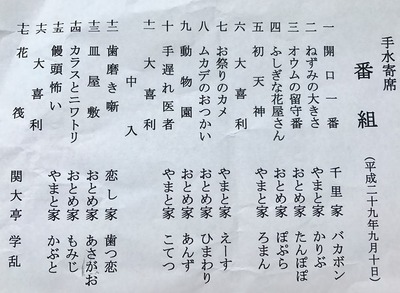 手水寄席
番組 (平成二十九年九月十日)
一 開口一番 千里家 バカボン
二 ねずみの大きさ やまと家 かりぶ
三 オウムの留守番 おとめ家 たんぽぽ
四 ふしぎな花屋さん おとめ家 ぽぷら
五 初天神 やまと家 ろまん
六 大喜利
七 お祭りのカメ やまと家 えーす
八 ムカデのおつかい おとめ家 ひまわり
九 動物園 おとめ家 あんず
十 手遅れ医者 やまと家 こてつ
十一 大喜利
中入
十二 歯磨き噺 恋し家 歯つ恋
十三 皿屋敷 おとめ家 あさがお
十四 カラスとニワトリ おとめ家 もみじ
十五 饅頭怖い やまと家 かぶと
十六 大喜利
十七 花筏 関大亭 学乱